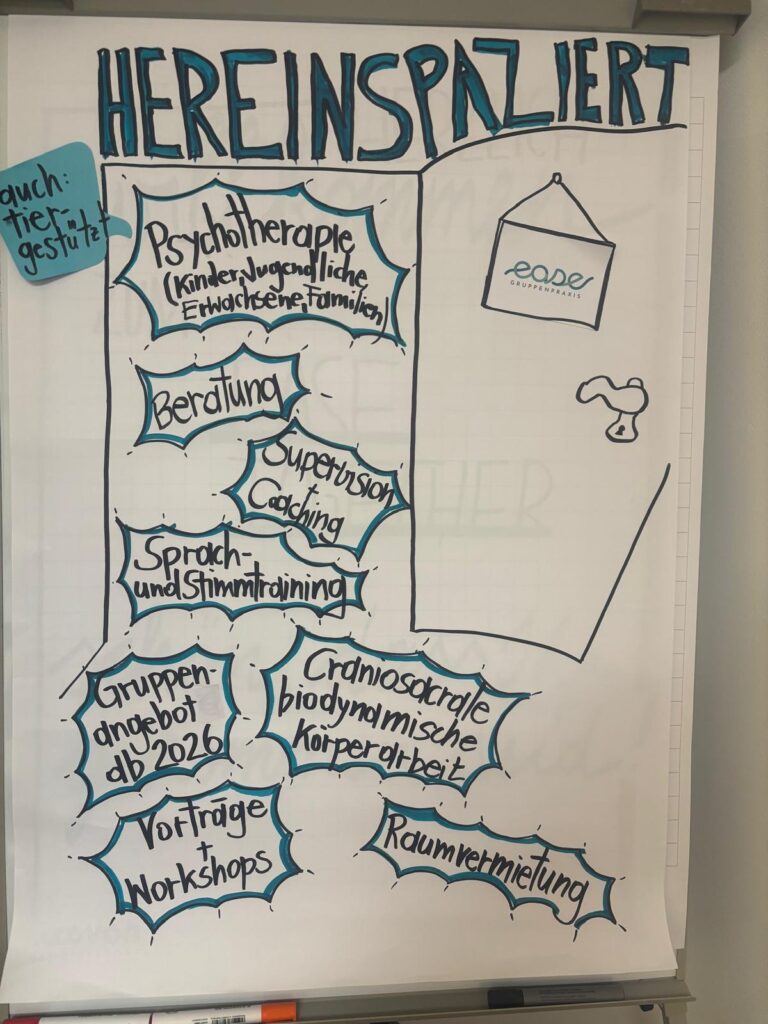 HEREINSPAZIERT
auch:
tier-
gestützt
Psychotherapie
(Kinder, Jugendliche,
Erwachsene, Familien)
ease
GRUPPENPRAXIS
Beratung
Supervision
+
Coaching
Sprach-
und Stimmtraining
Gruppen-
angebot
ab 2026
Craniosacrale
biodynamische
Körperarbeit
Vorträge
+
Workshops
Raumvermietung